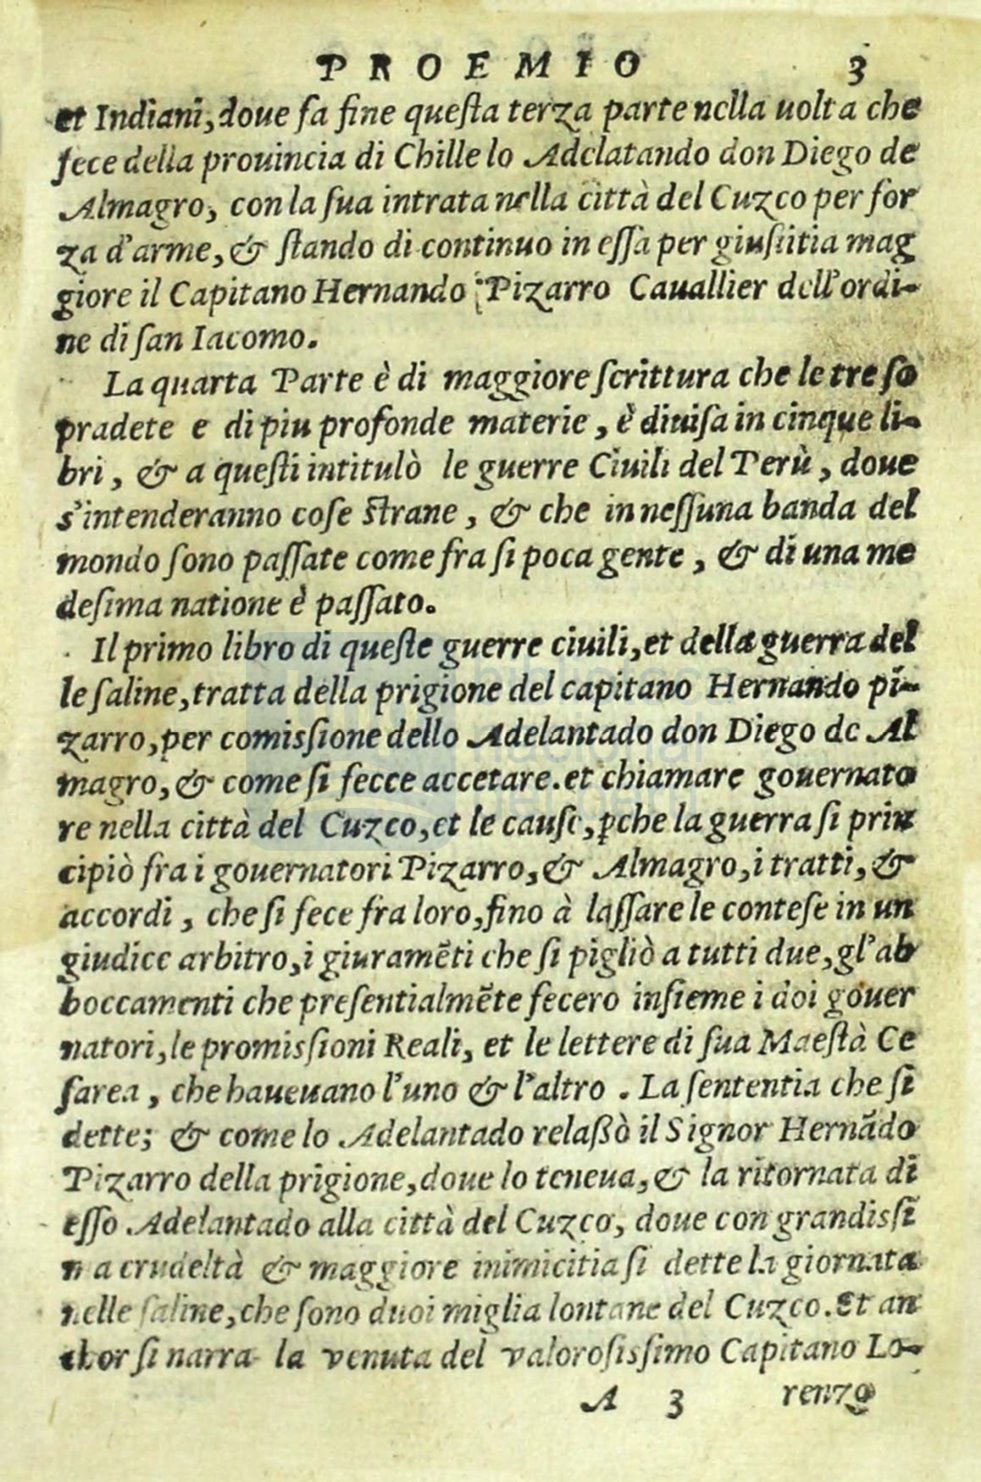 PROEMIO 3
et Indiani, doue fa fine questa terza parte nella uolta che
fece della prouincia di Chille lo Adelatando don Diego de
Almagro, con la sua intrata nella città del Cuzco per for
za d'arme, & stando di continuo in essa per giustitia mag
giore il Capitano Hernando Pizarro Cauallier dell'ordi-
ne di san Iacomo.
La quarta Parte è di maggiore scrittura che le tre so
pradete e di piu profonde materie, è diuisa in cinque li-
bri, & a questi intitulò le guerre Ciuili del Perù, doue
s'intenderanno cose strane, & che in nessuna banda del
mondo sono passate come fra si poca gente, & di una me
desima natione è passato.
Il primo libro di queste guerre ciuili, et della guerra del
le saline, tratta della prigione del capitano Hernando pi-
zarro, per comissione dello Adelantado don Diego de Al
magro, & come si fecce accetare. et chiamare gouernato
re nella città del Cuzco, et le cause, ꝑche la guerra si prin
cipiò fra i gouernatori Pizarro, & Almagro, i tratti, &
accordi, che si fece fra loro, fino à lassare le contese in un
giudice arbitro, i giuramẽti che si pigliò a tutti due, gl'ab
boccamenti che presentialmẽte fecero insieme i doi gouer
natori, le promissioni Reali, et le lettere di sua Maestà Ce
sarea, che haueuano l'uno & l'altro. La sententia che si
dette; & come lo Adelantado relaßò il Signor Hernãdo
Pizarro della prigione, doue lo teneua, & la ritornata di
esso Adelantado alla città del Cuzco, doue con grandissi
ma crudeltà & maggiore inimicitia si dette la giornata
nelle saline, che sono duoi miglia lontane del Cuzco. Et an
chor si narra la venuta del valorosissimo Capitano Lo-
A 3 renzo